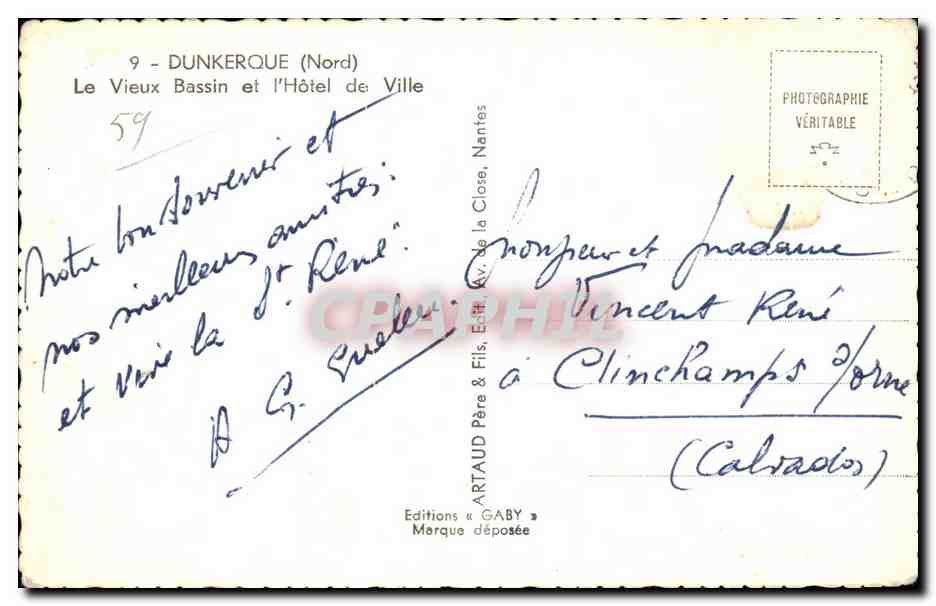 9 - DUNKERQUE (Nord)
Le Vieux Bassin et l'Hôtel de Ville
59
Notre bon souvenir et
nos meilleures amitiés.
et vive la St. René".
A G.
ARTAUD Père & Fils, Edit., Av. de la Close, Nantes
PHOTOGRAPHIE
VÉRITABLE
Monsieur et Madame
Vincent René
à Clinchamps s/orne
(Calvados)
Editions « GABY »
Marque déposée
CPAPHIL